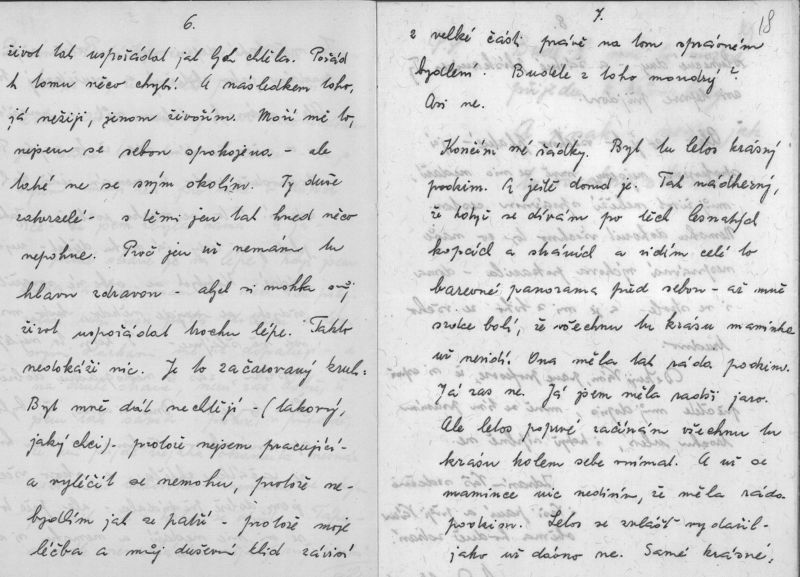 6.
život tak uspořádat jak bych chtěla. Pořád
k tomu něco chybí. A následkem toho,
já nežiji, jenom živořím. Moří mě to,
nejsem se sebou spokojena - ale
také ne se svým okolím. Ty duše
zatvrzelé - s těmi jen tak hned něco
nepohne. Proč jen už nemám tu
hlavu zdravou - abych si mohla svůj
život uspořádat trochu lépe. Takto
nedokáži nic. Je to začarovaný kruh.
Byt mně dát nechtějí - (takový,
jaký chci) - protože nejsem pracující -
a vyléčit se nemohu, protože ne-
bydlím jak se patří - protože moje
léčba a můj duševní klid závisí
7.
18
z velké části právě na tom správném
bydlení. Budete z toho moudrý?
Asi ne.
Končím mé řádky. Byl tu letos krásný
podzim. A ještě dosud je. Tak nádherný,
že když se dívám po těch lesnatých
kopcích a stráních a vidím celé to
barevné panorama před sebou - až mně
srdce bolí, že všechnu tu krásu maminka
už nevidí. Ona měla tak ráda podzim.
Já zas ne. Já jsem měla radši jaro.
Ale letos poprvé začínám všechnu tu
krásu kolem sebe vnímat. A už se
mamince nic nedivím, že měla ráda
podzim. Letos se zvlášť vydařil -
jako už dávno ne. Samé krásné,